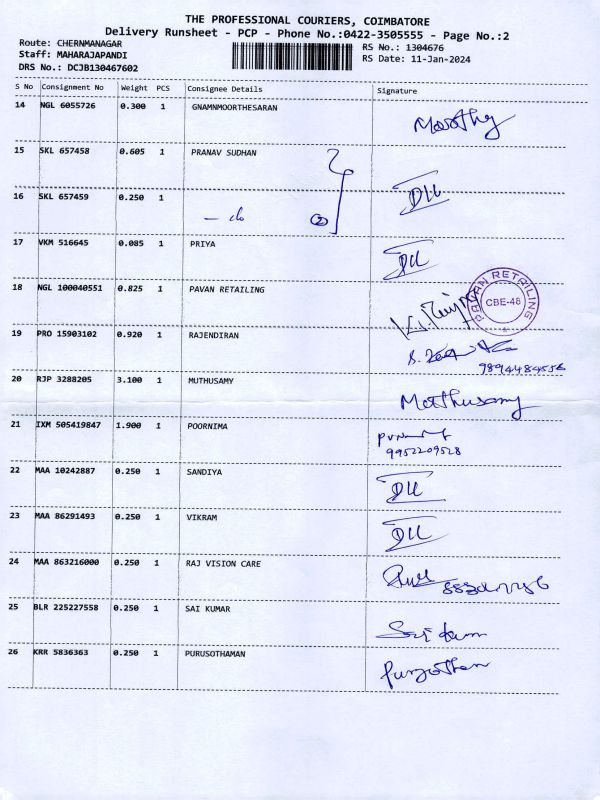 THE PROFESSIONAL COURIERS, COIMBATORE
Delivery Runsheet - PCP - Phone No.:0422-3505555 - Page No.:2
Route: CHERNMANAGAR RS No.: 1304676
Staff: MAHARAJAPANDI RS Date: 11-Jan-2024
DRS No.: DCJB130467602
S No Consignment No Weight PCS Consignee Details Signature
14 NGL 6055726 0.300 1 GNAMNMOORTHESARAN Moorthy
15 SKL 657458 0.605 1 PRANAV SUDHAN
16 SKL 657459 0.250 1 DLL
— do 2
17 VKM 516645 0.085 1 PRIYA DLL
18 NGL 100040551 0.825 1 PAVAN RETAILING PAVAN RETAILING CBE-48
19 PRO 15903102 0.920 1 RAJENDIRAN
9894484556
20 RJP 3288205 3.100 1 MUTHUSAMY Mathusamy
21 IXM 505419847 1.900 1 POORNIMA
9952209528
22 MAA 10242887 0.250 1 SANDIYA DLL
23 MAA 86291493 0.250 1 VIKRAM DLL
24 MAA 863216000 0.250 1 RAJ VISION CARE
25 BLR 225227558 0.250 1 SAI KUMAR Sai kum
26 KRR 5836363 0.250 1 PURUSOTHAMAN